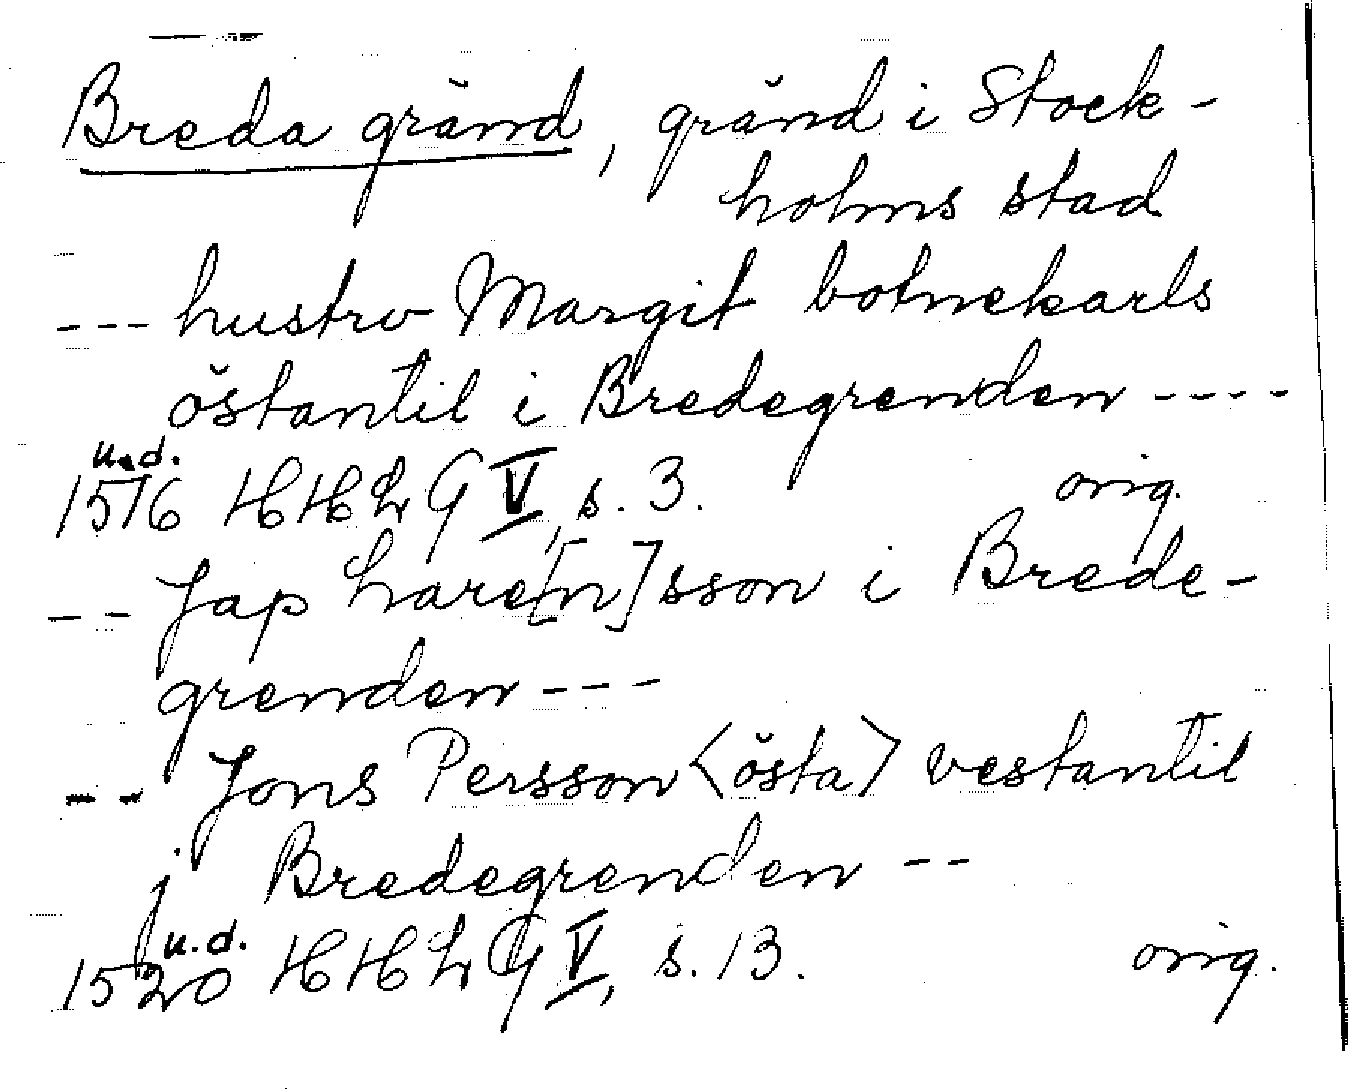 Breda gränd, gränd i Stock-
holms stad
--- hustrv Margit botnekarls
östantil i Bredegrenden ----
u.d.
1516 HHL G V, s. 3. orig.
-- Jap hare[n]sson i Brede-
grenden ---
-- Jons Persson <östa> vestantil
j Bredegrenden --
u.d.
1520 HHL G V, s. 13. orig.